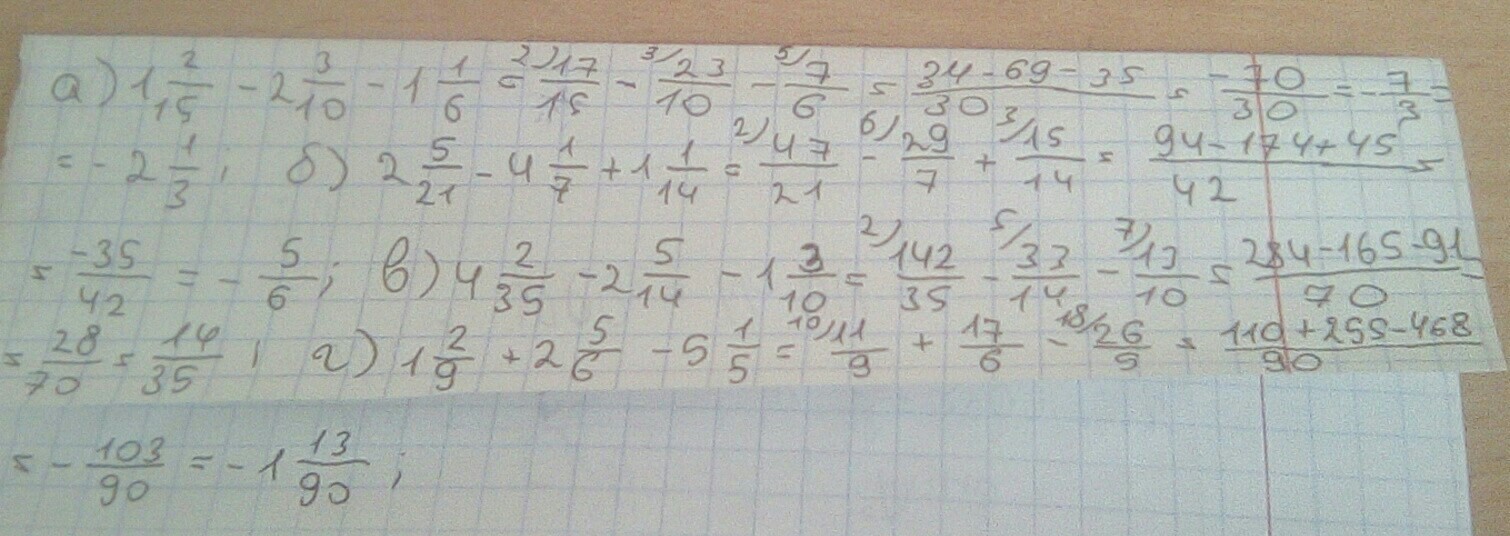 а) 1 2/15 - 2 3/10 - 1 1/6 = 2) 17/15 - 3/ 23/10 - 5/ 7/6 = 34-69-35/30 = -70/30 = -7/3 =
= -2 1/3 ; б) 2 5/21 - 4 1/7 + 1 1/14 = 2) 47/21 - 6) 29/7 + 3/ 15/14 = 94-174+45/42 =
= -35/42 = - 5/6 ; в) 4 2/35 - 2 5/14 - 1 3/10 = 2/ 142/35 - 5/ 33/14 - 7/ 13/10 = 284-165-91/70
= 28/70 = 14/35 ; г) 1 2/9 + 2 5/6 - 5 1/5 = 10/ 11/9 + 17/6 - 18/ 26/5 = 110+255-468/90
= - 103/90 = -1 13/90 ;